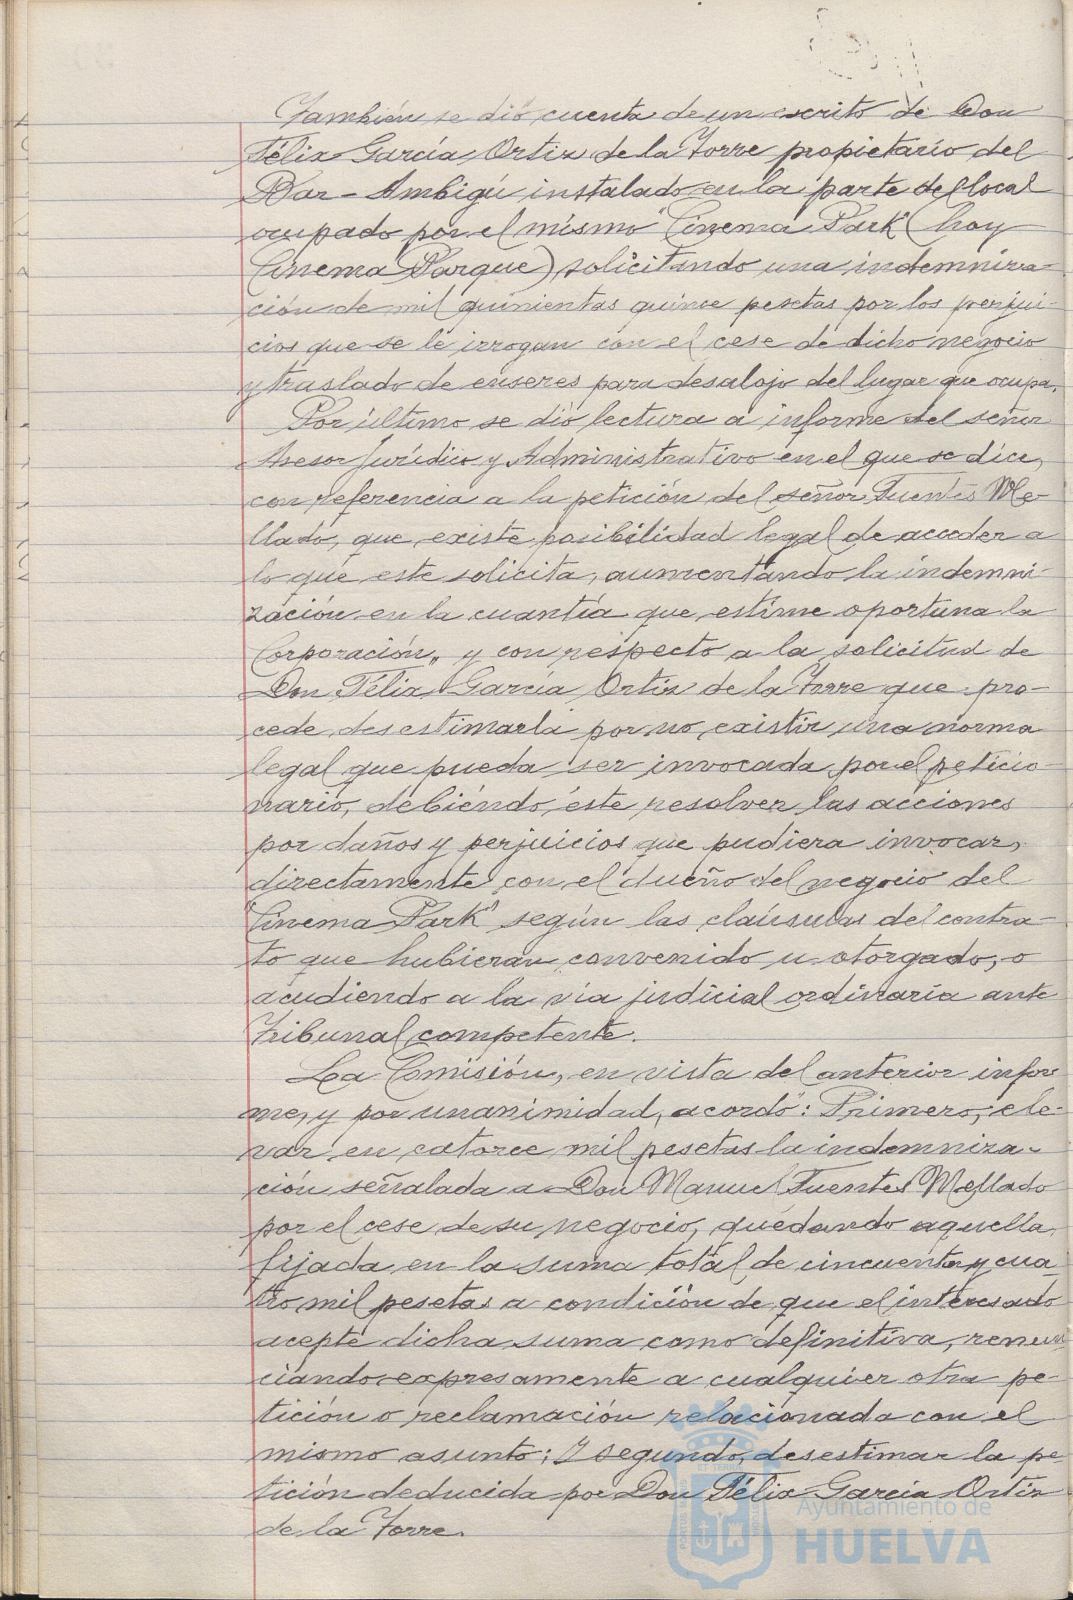 También se dió cuenta de un escrito de Don
Félix García Ortiz de la Torre propietario del
Bar-Ambigú instalado en la parte del local
ocupado por el mismo "Cinema Park" (hoy
Cinema Parque) solicitando una indemniza-
ción de mil quinientas quince pesetas por los perjui-
cios que se le irrogan con el cese de dicho negocio
y traslado de enseres para desalojo del lugar que ocupa.
Por último se dió lectura a informe del señor
Asesor Jurídico y Administrativo en el que se dice,
con referencia a la petición del señor Fuentes Me-
llado, que existe posibilidad legal de acceder a
lo que este solicita, aumentando la indemni-
zación en la cuantía que estime oportuna la
Corporación, y con respecto a la solicitud de
Don Félix García Ortiz de la Torre que pro-
cede desestimarla por no existir una norma
legal que pueda ser invocada por el peticio-
nario, debiendo éste resolver las acciones
por daños y perjuicios que pudiera invocar,
directamente con el dueño del negocio del
"Cinema Park" según las cláusulas del contra-
to que hubieran convenido u otorgado, o
acudiendo a la vía judicial ordinaria ante
Tribunal competente.
La Comisión, en vista del anterior infor
me, y por unanimidad, acordó: Primero; ele-
var en catorce mil pesetas la indemniza-
ción señalada a Don Manuel Fuentes Mellado
por el cese de su negocio, quedando aquella
fijada en la suma total de cincuenta y cua-
tro mil pesetas a condición de que el interesado
acepte dicha suma como definitiva, renun
ciando expresamente a cualquier otra pe-
tición o reclamación relacionada con el
mismo asunto; Y segundo, desestimar la pe
tición deducida por Don Félix García Ortiz
de la Torre.
Ayuntamiento de
HUELVA